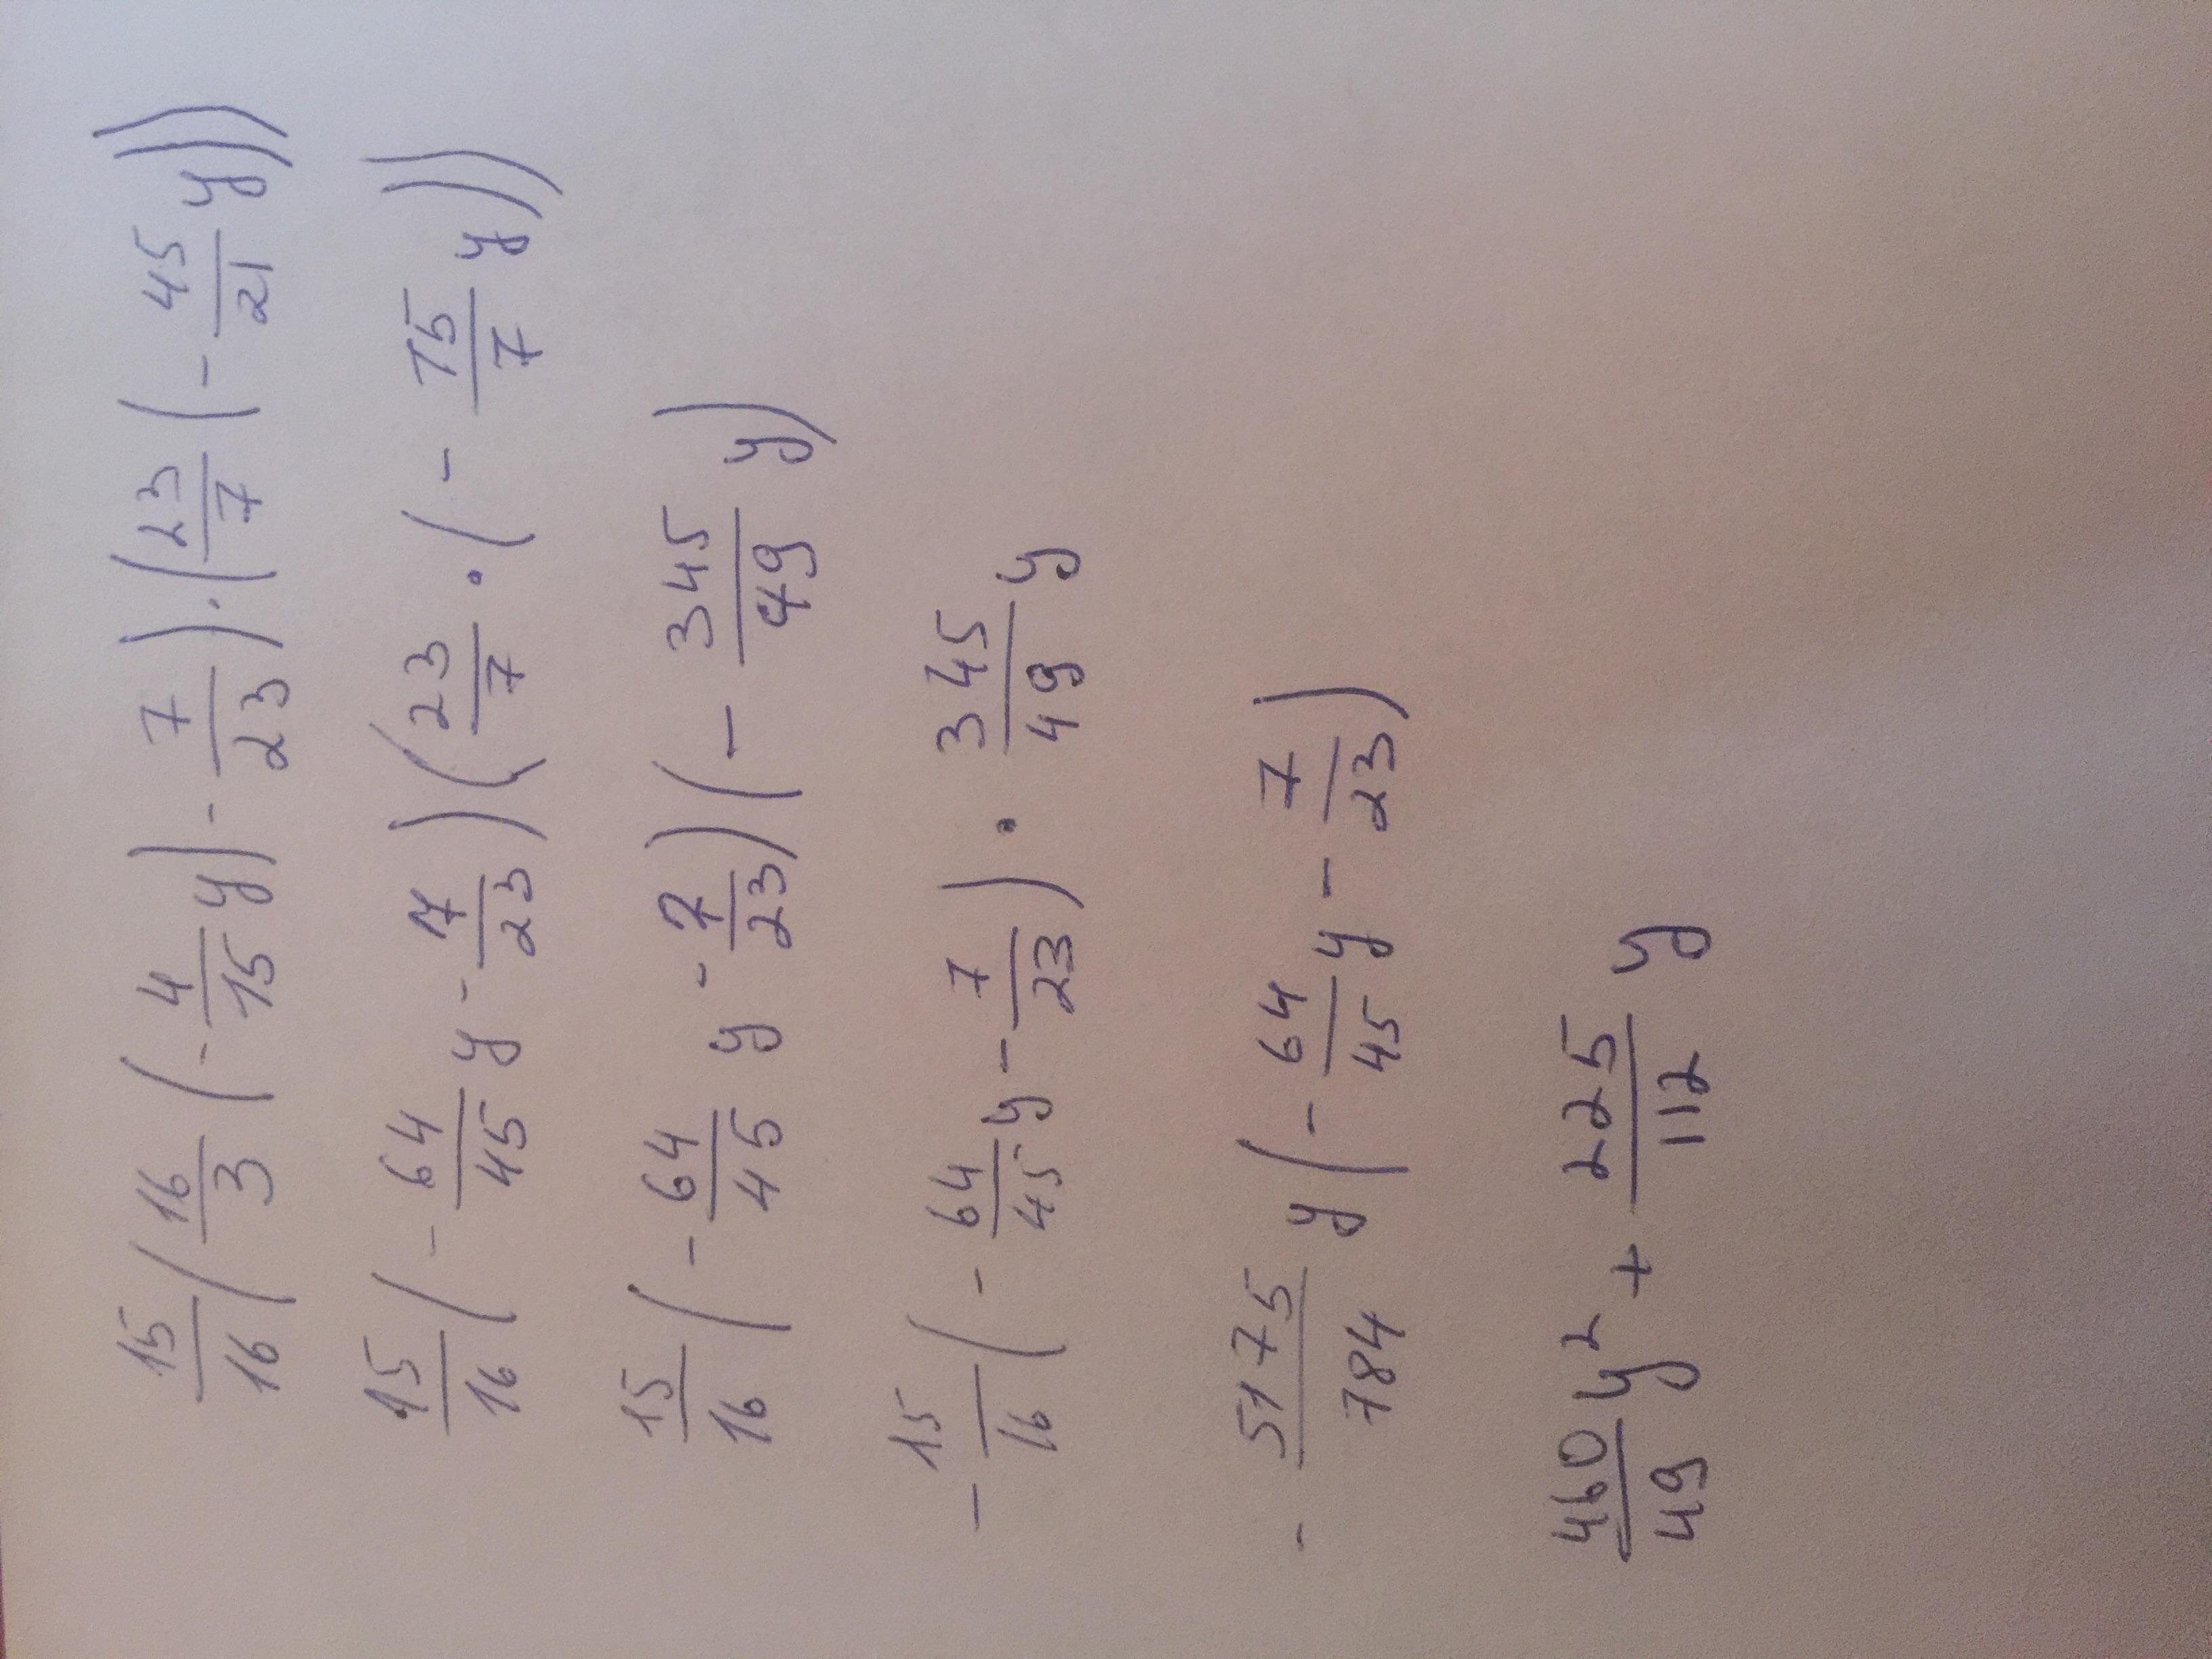 15/16 (16/3 (- 4/15 y) - 7/23) · (23/7 (- 45/21 y))
15/16 (- 64/45 y - 7/23) (23/7 · (- 15/7 y))
15/16 (- 64/45 y - 7/23) (- 345/49 y)
- 15/16 (- 64/45 y - 7/23) · 345/49 y
- 5175/784 y (- 64/45 y - 7/23)
460/49 y² + 225/112 y